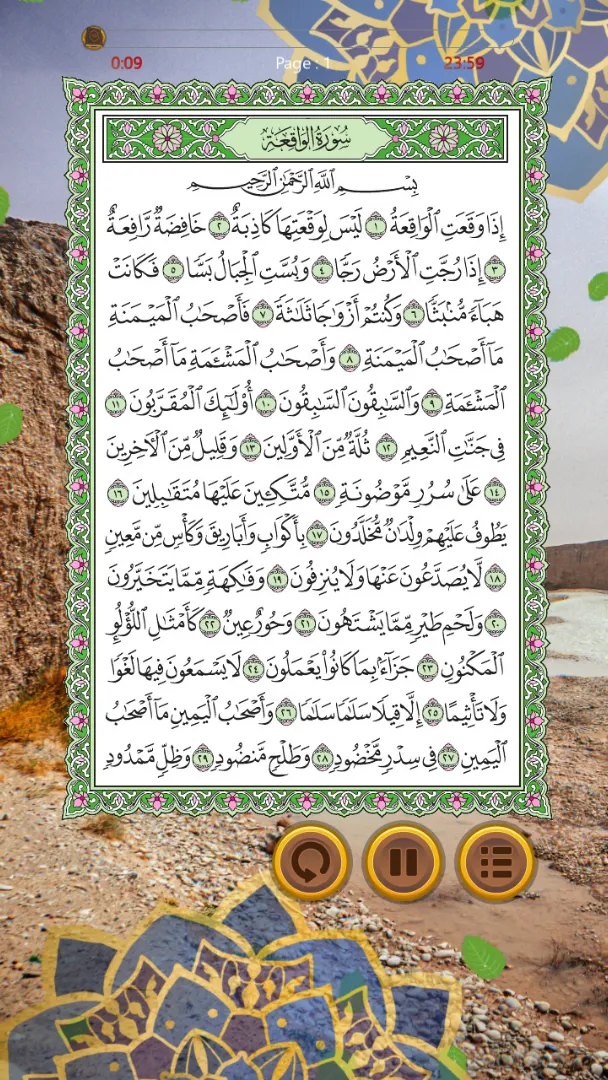 0:09
Page . 1
23:59
سُورَةُ الوَاقِعَةِ
بِسْمِ ٱللَّهِ ٱلرَّحْمَٰنِ ٱلرَّحِيمِ
إِذَا وَقَعَتِ ٱلْوَاقِعَةُ ١ لَيْسَ لِوَقْعَتِهَا كَاذِبَةٌ ٢ خَافِضَةٌ رَّافِعَةٌ
٣ إِذَا رُجَّتِ ٱلْأَرْضُ رَجًّا ٤ وَبُسَّتِ ٱلْجِبَالُ بَسًّا ٥ فَكَانَتْ
هَبَآءً مُّنۢبَثًّا ٦ وَكُنتُمْ أَزْوَٰجًا ثَلَٰثَةً ٧ فَأَصْحَٰبُ ٱلْمَيْمَنَةِ
مَآ أَصْحَٰبُ ٱلْمَيْمَنَةِ ٨ وَأَصْحَٰبُ ٱلْمَشْـَٔمَةِ مَآ أَصْحَٰبُ
ٱلْمَشْـَٔمَةِ ٩ وَٱلسَّٰبِقُونَ ٱلسَّٰبِقُونَ ١٠ أُو۟لَٰٓئِكَ ٱلْمُقَرَّبُونَ ١١
فِى جَنَّٰتِ ٱلنَّعِيمِ ١٢ ثُلَّةٌ مِّنَ ٱلْأَوَّلِينَ ١٣ وَقَلِيلٌ مِّنَ ٱلْـَٔاخِرِينَ
١٤ عَلَىٰ سُرُرٍ مَّوْضُونَةٍ ١٥ مُّتَّكِـِٔينَ عَلَيْهَا مُتَقَٰبِلِينَ ١٦
يَطُوفُ عَلَيْهِمْ وِلْدَٰنٌ مُّخَلَّدُونَ ١٧ بِأَكْوَابٍ وَأَبَارِيقَ وَكَأْسٍ مِّن مَّعِينٍ
١٨ لَّا يُصَدَّعُونَ عَنْهَا وَلَا يُنزِفُونَ ١٩ وَفَٰكِهَةٍ مِّمَّا يَتَخَيَّرُونَ
٢٠ وَلَحْمِ طَيْرٍ مِّمَّا يَشْتَهُونَ ٢١ وَحُورٌ عِينٌ ٢٢ كَأَمْثَٰلِ ٱللُّؤْلُؤِ
ٱلْمَكْنُونِ ٢٣ جَزَآءًۢ بِمَا كَانُوا۟ يَعْمَلُونَ ٢٤ لَا يَسْمَعُونَ فِيهَا لَغْوًا
وَلَا تَأْثِيمًا ٢٥ إِلَّا قِيلًا سَلَٰمًا سَلَٰمًا ٢٦ وَأَصْحَٰبُ ٱلْيَمِينِ مَآ أَصْحَٰبُ
ٱلْيَمِينِ ٢٧ فِى سِدْرٍ مَّخْضُودٍ ٢٨ وَطَلْحٍ مَّنضُودٍ ٢٩ وَظِلٍّ مَّمْدُودٍ